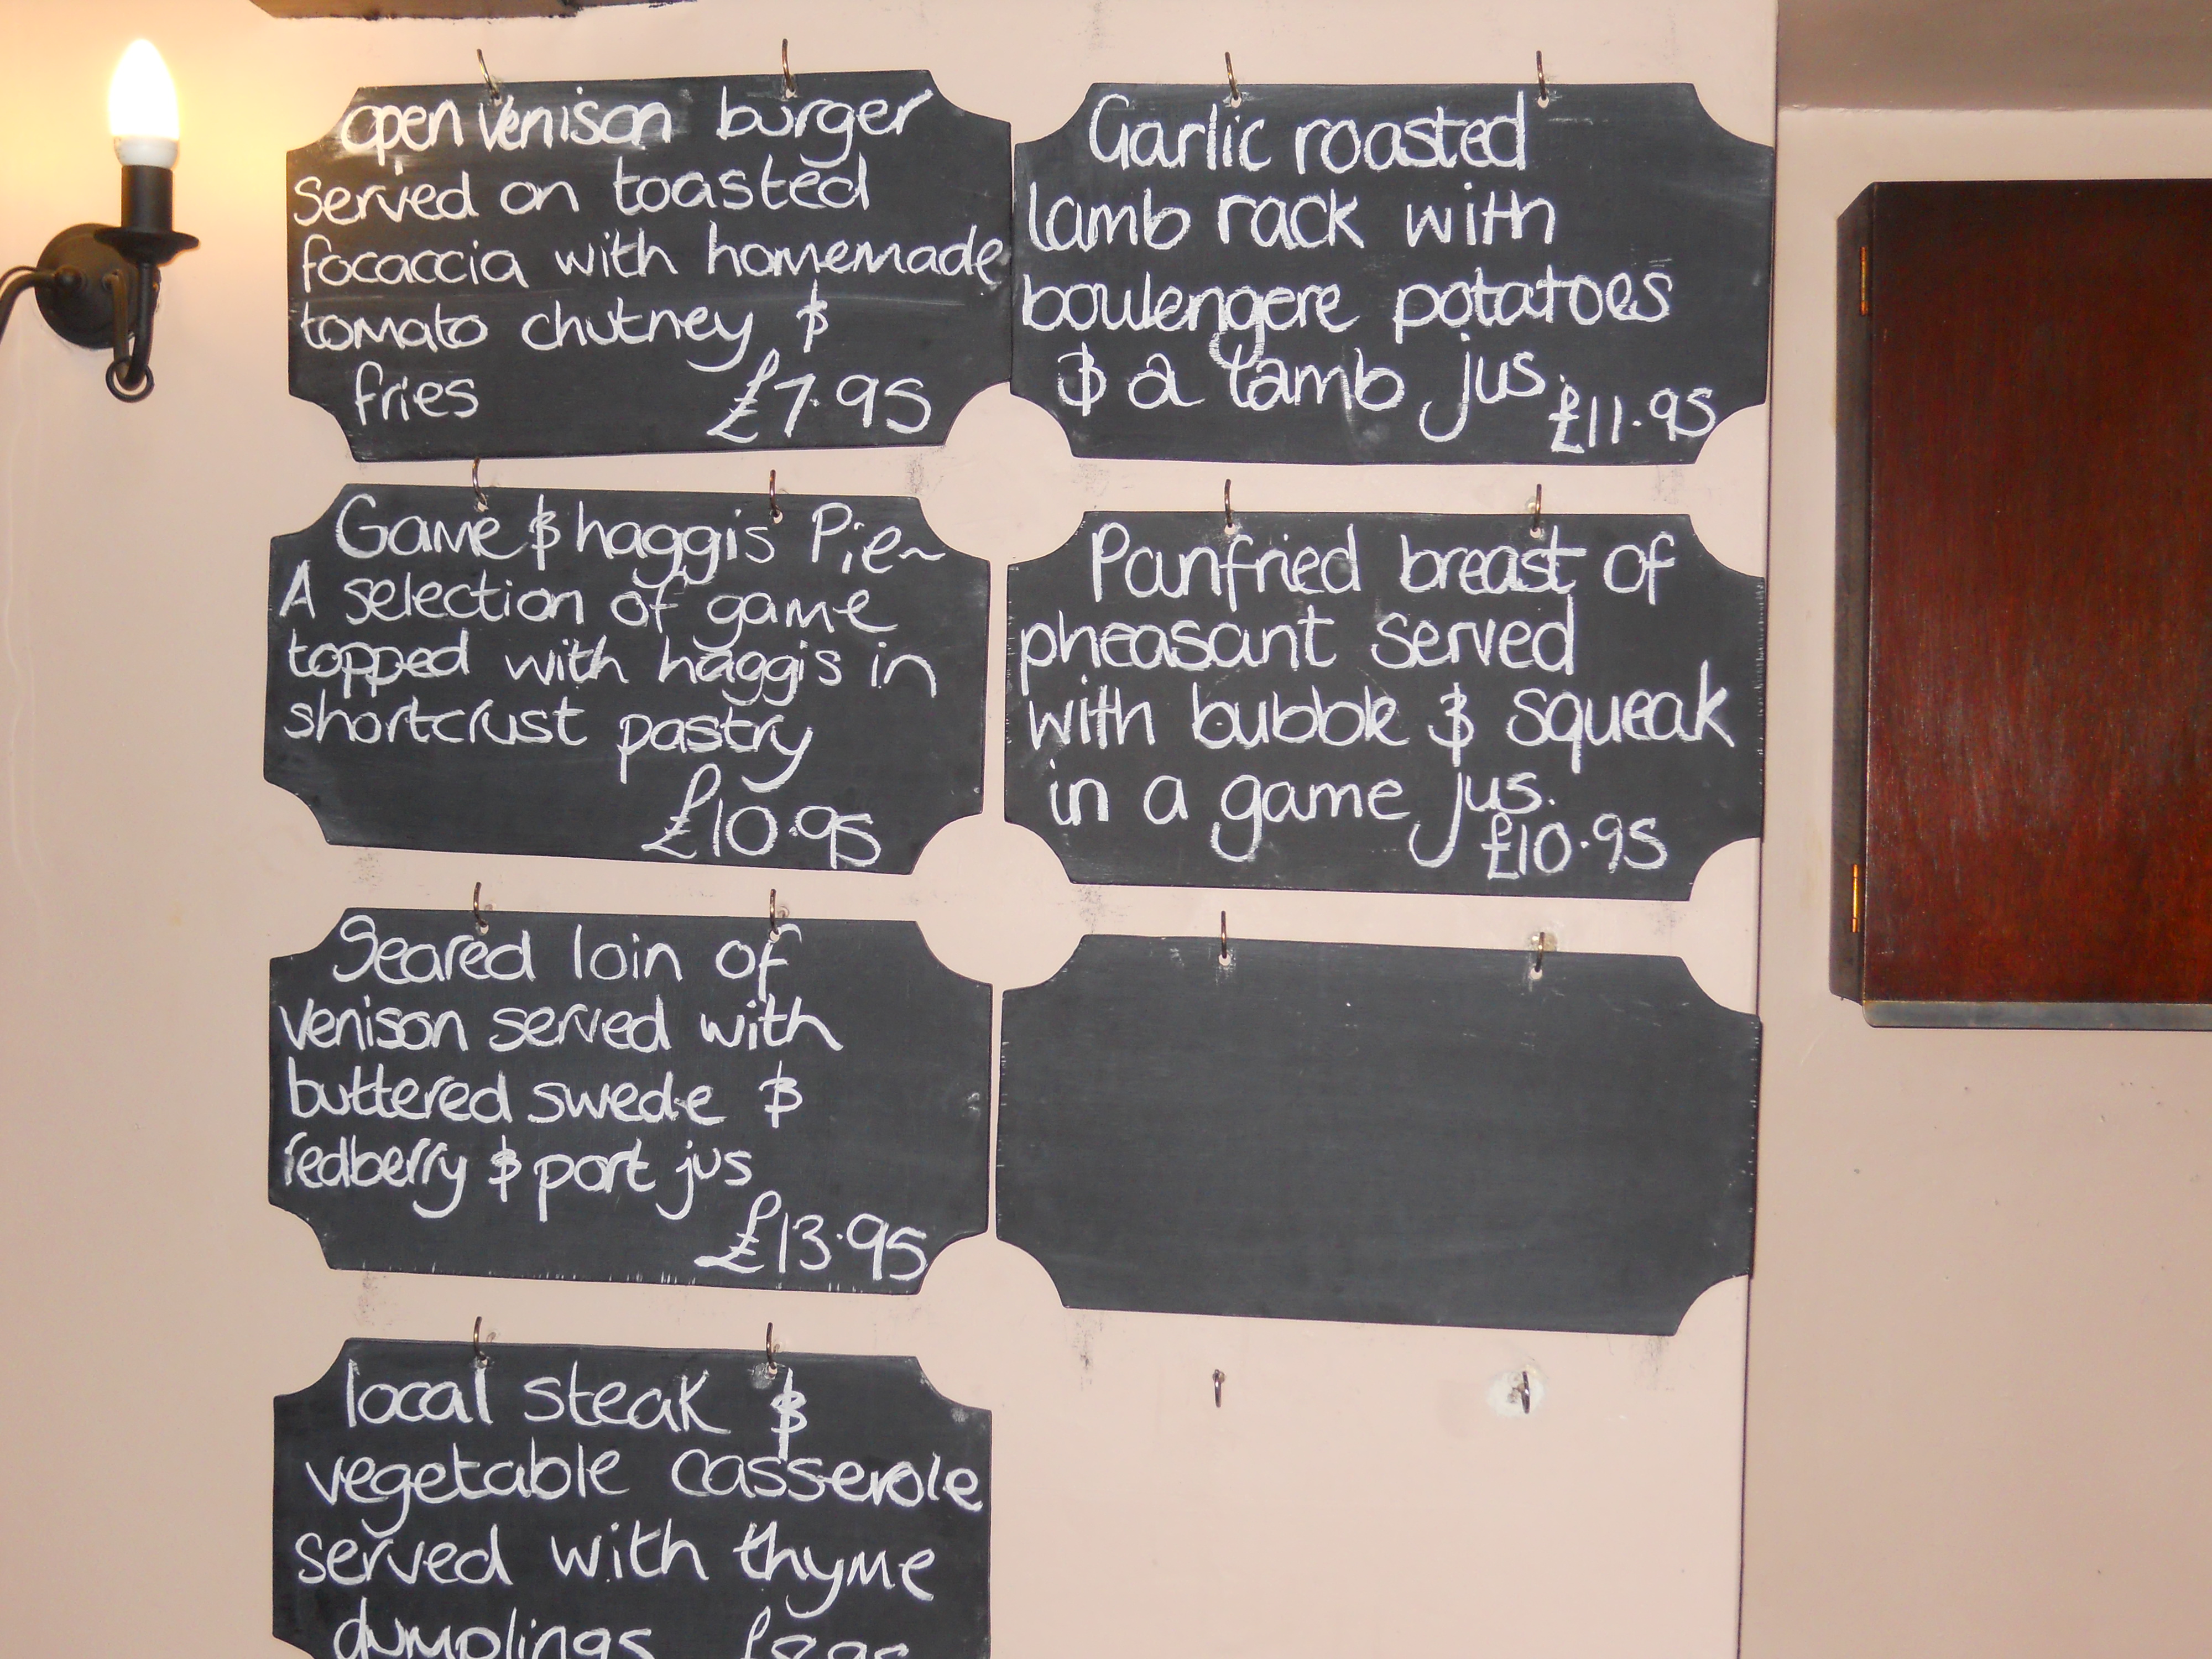 open venison burger
served on toasted
focaccia with homemade
tomato chutney &
fries £7.95
Game & haggis Pie~
A selection of game
topped with haggis in
shortcrust pastry
£10.95
Seared loin of
venison served with
buttered swede &
redberry & port jus
£13.95
local steak &
vegetable casserole
served with thyme
dumplings
Garlic roasted
lamb rack with
boulengere potatoes
& a lamb jus.
£11.95
Panfried breast of
pheasant served
with bubble & squeak
in a game jus.
£10.95